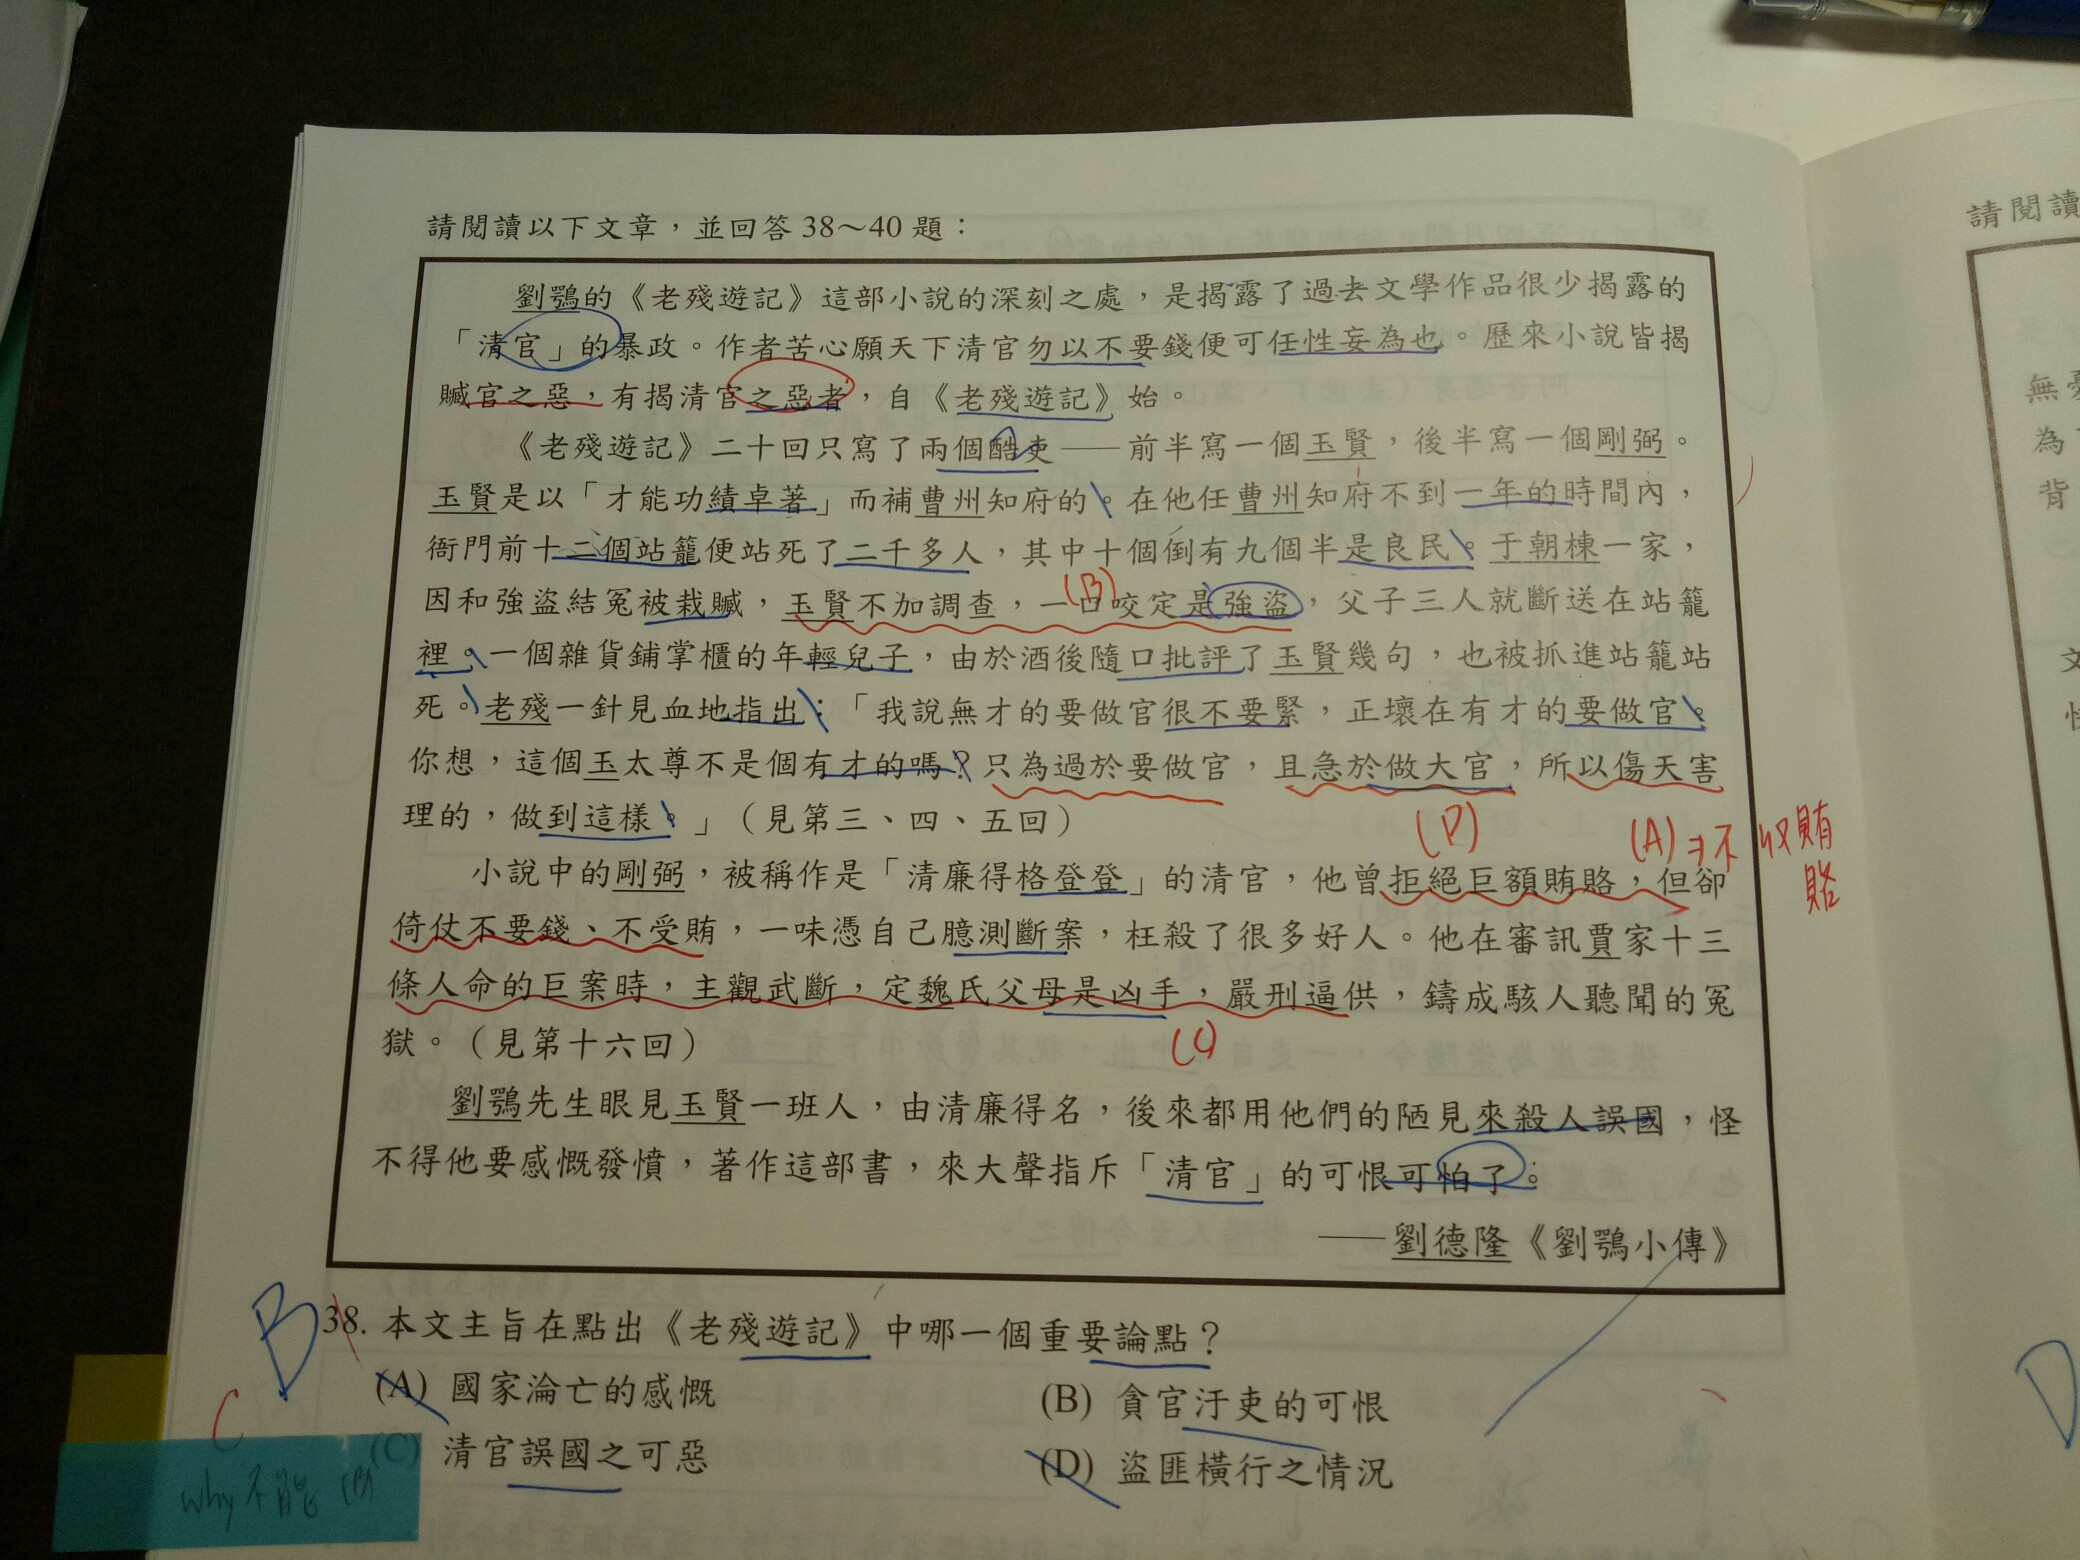 請閱讀以下文章，並回答38～40題：
劉鶚的《老殘遊記》這部小說的深刻之處，是揭露了過去文學作品很少揭露的
「清官」的暴政。作者苦心願天下清官勿以不要錢便可任性妄為也。歷來小說皆揭
贓官之惡，有揭清官之惡者，自《老殘遊記》始。
《老殘遊記》二十回只寫了兩個酷吏——前半寫一個玉賢，後半寫一個剛弼。
玉賢是以「才能功績卓著」而補曹州知府的。在他任曹州知府不到一年的時間內，
衙門前十二個站籠便站死了二千多人，其中十個倒有九個半是良民。于朝棟一家，
因和強盜結冤被栽贓，玉賢不加調查，一口咬定是強盜，父子三人就斷送在站籠
(B)
裡。一個雜貨鋪掌櫃的年輕兒子，由於酒後隨口批評了玉賢幾句，也被抓進站籠站
死。老殘一針見血地指出：「我說無才的要做官很不要緊，正壞在有才的要做官。
你想，這個玉太尊不是個有才的嗎？只為過於要做官，且急於做大官，所以傷天害
理的，做到這樣。」（見第三、四、五回）
(D)
(A)⇒不收賄賂
小說中的剛弼，被稱作是「清廉得格登登」的清官，他曾拒絕巨額賄賂，但卻
倚仗不要錢、不受賄，一味憑自己臆測斷案，枉殺了很多好人。他在審訊賈家十三
條人命的巨案時，主觀武斷，定魏氏父母是凶手，嚴刑逼供，鑄成駭人聽聞的冤
獄。（見第十六回）
(C)
劉鶚先生眼見玉賢一班人，由清廉得名，後來都用他們的陋見來殺人誤國，怪
不得他要感慨發憤，著作這部書，來大聲指斥「清官」的可恨可怕了。
——劉德隆《劉鶚小傳》
B
38. 本文主旨在點出《老殘遊記》中哪一個重要論點？
(A) 國家淪亡的感慨
(B) 貪官汙吏的可恨
C
(C) 清官誤國之可惡
(D) 盜匪橫行之情況
why 不能 (B)
請閱讀
無憂
為
背
文
D